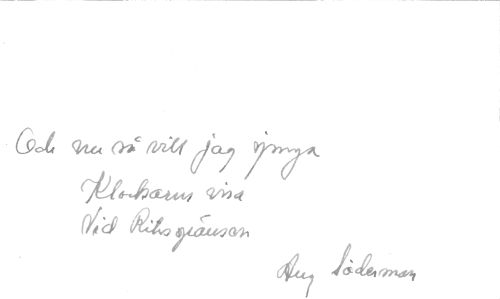 Och nu så vill jag sjunga
Klockarens visa
Vid Riksgränsen
Aug Söderman